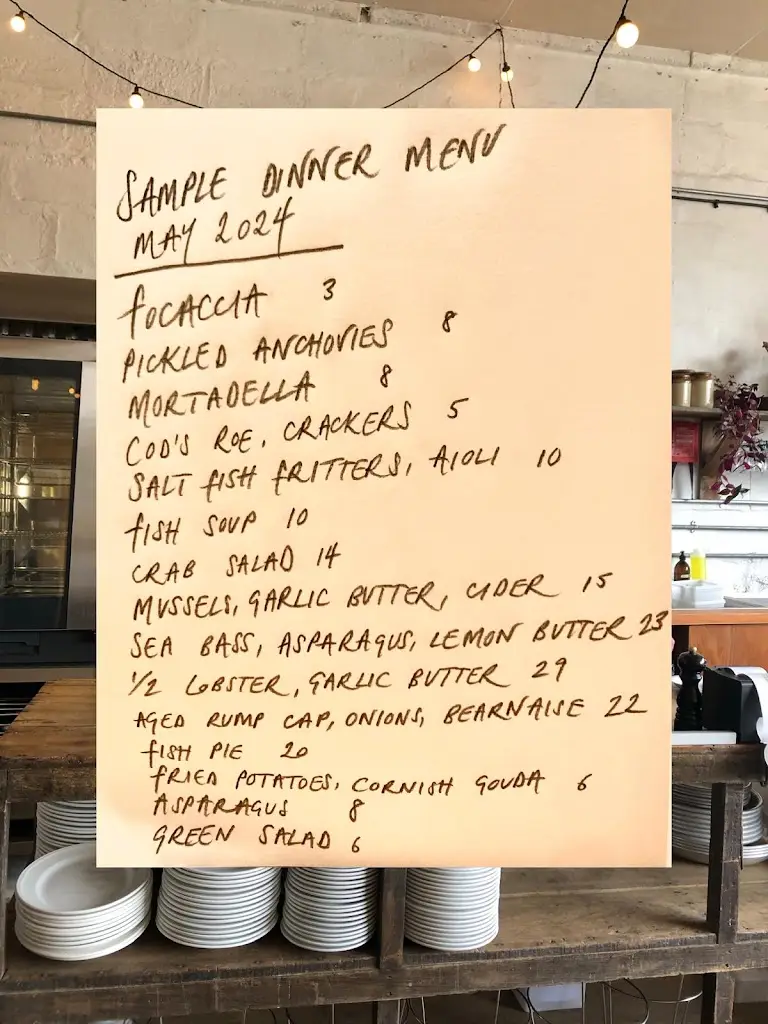 SAMPLE DINNER MENU
MAY 2024
FOCACCIA 3
PICKLED ANCHOVIES 8
MORTADELLA 8
COD'S ROE, CRACKERS 5
SALT FISH FRITTERS, AIOLI 10
FISH SOUP 10
CRAB SALAD 14
MUSSELS, GARLIC BUTTER, CIDER 15
SEA BASS, ASPARAGUS, LEMON BUTTER 23
1/2 LOBSTER, GARLIC BUTTER 29
AGED RUMP CAP, ONIONS, BEARNAISE 22
FISH PIE 20
FRIED POTATOES, CORNISH GOUDA 6
ASPARAGUS 8
GREEN SALAD 6